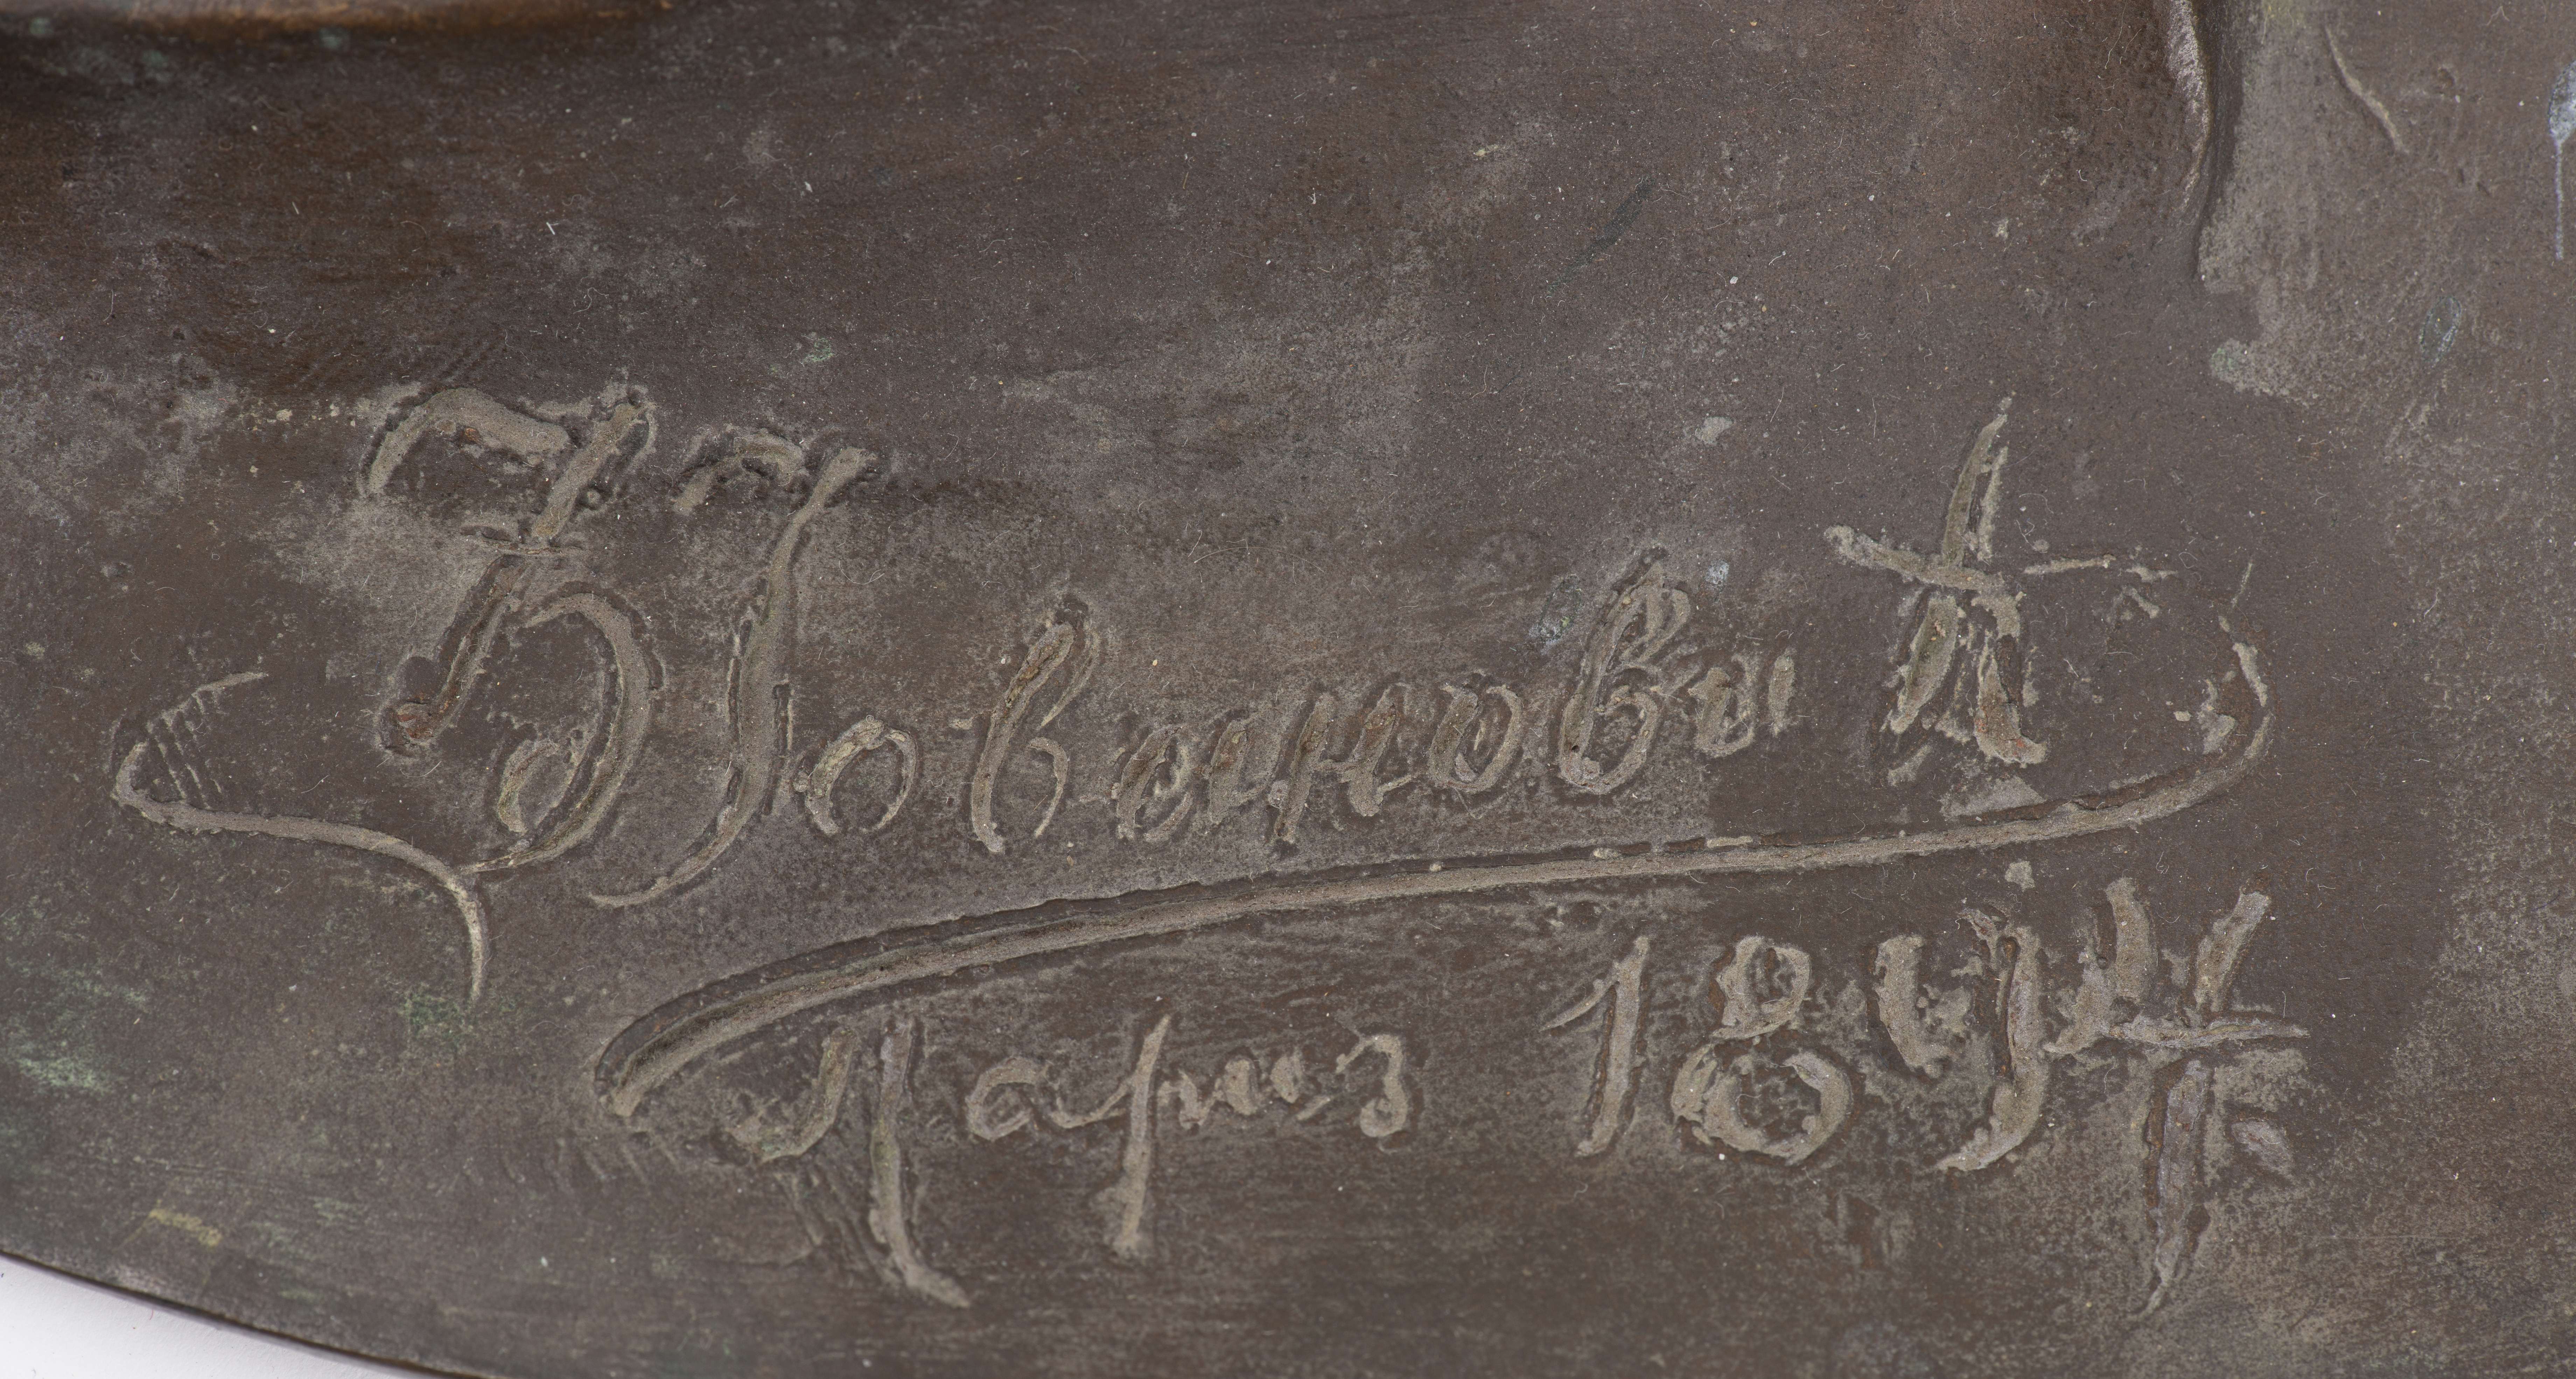 Ђ Јовановић
Париз 1894